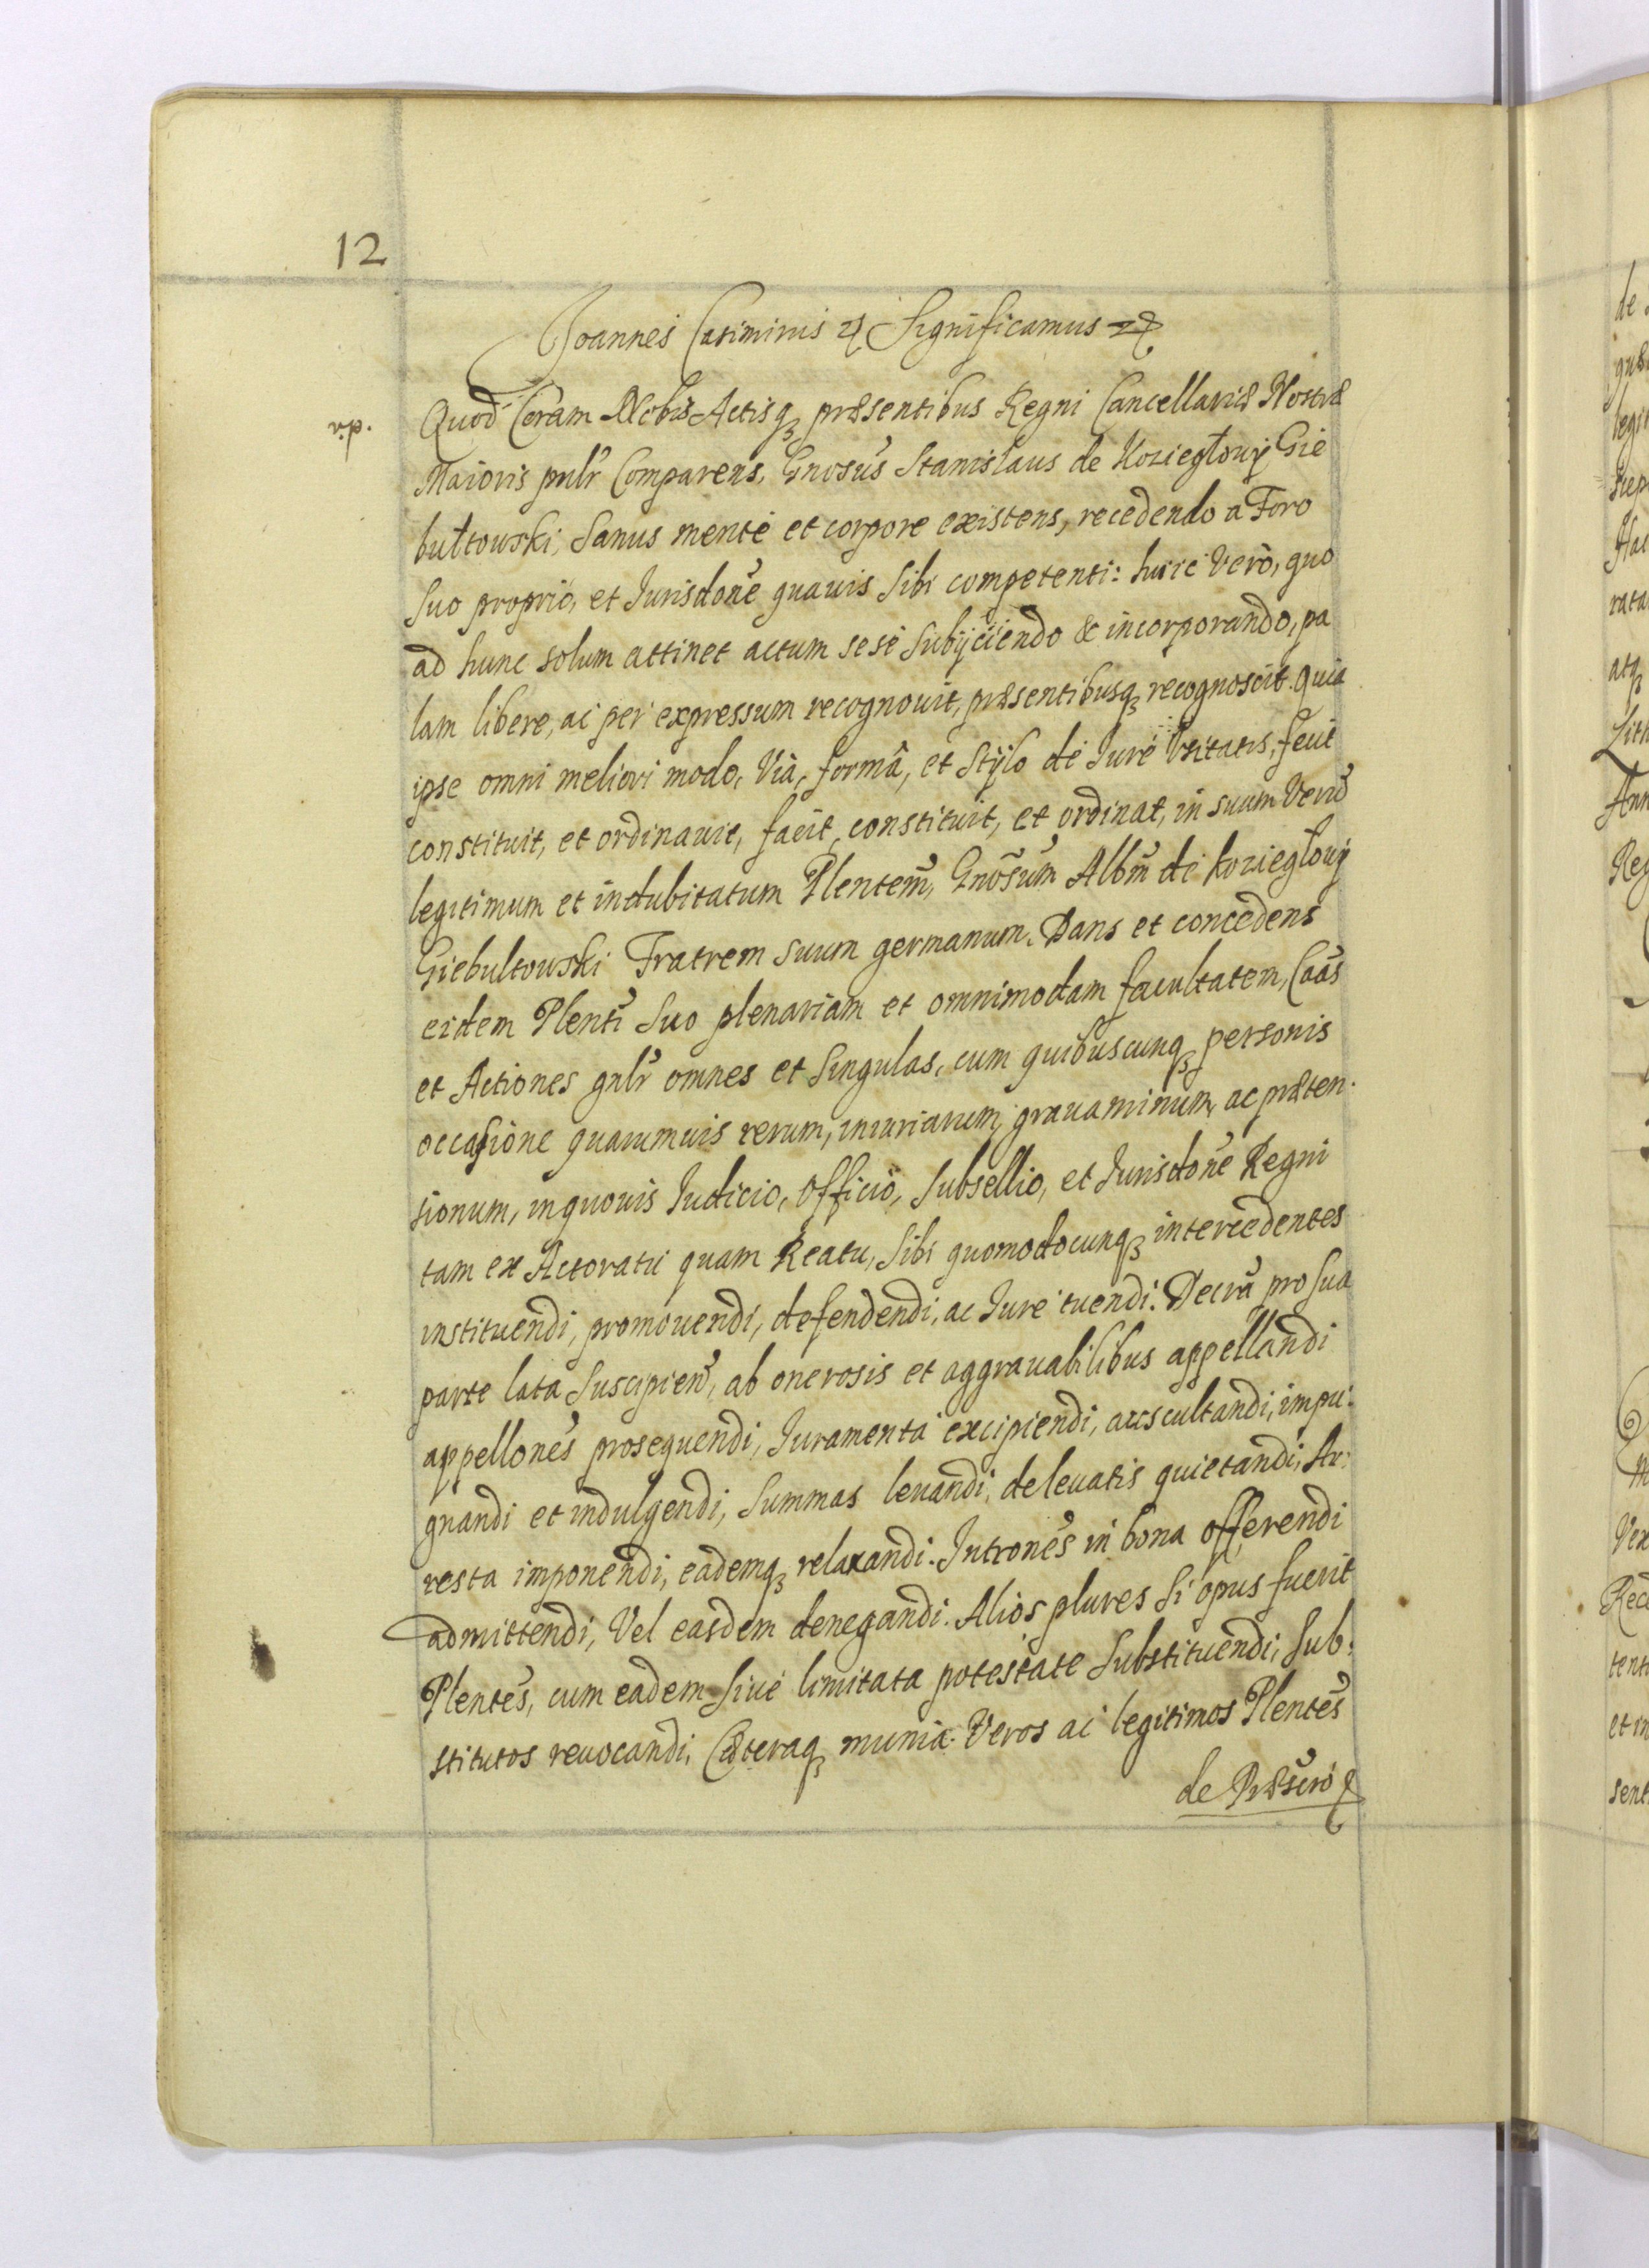 12
Joannes Casimirus etc Significamus etc
Quod Coram Nobis Actisq3 præsentibus Regni Cancellariæ Nostræ
Maioris pnlr Comparens, Gnosus Stanislaus de Koziegłowÿ Gie
bułtowski, Sanus mente et corpore existens, recedendo a Foro
Suo proprio, et Jurisdone quauis Sibi competenti: huic Verò, quo
ad hunc solum attinet actum sese Subijciendo & incorporando, pa
lam libere, ac per expressum recognouit, præsentibusq3 recognoscit. Quia
ipse omni meliori modo, Via, formâ, et Stÿlo de Jure Vsitatis, fecit
constituit, et ordinauit, facit, constituit, et ordinat, in suum Veru
legitimum et indubitatum Plentem, Gnosum Albm de Koziegłowÿ
Giebultowski Fratrem suum germanum. Dans et concedens
eidem Plenti Suo plenariam et omnimodam facultatem, Caas
et Actiones gnlr omnes et Singulas, cum quibuscunq3 personis
occasione quarumuis rerum, iniuriarum, grauaminum, ac præten-
sionum, in quouis Judicio, Officio, Subsellio, et Jurisdone Regni
tam ex Actoratu quam Reatu, Sibi quomodocunq3 intercedentes
instituendi, promouendi, defendendi, ac Jure tuendi. Decra pro sua
parte lata Suscipien, ab onerosis et aggrauabilibus appellandi
appellones prosequendi, Juramenta excipiendi, auscultandi, impu-
gnandi et indulgendi, Summas leuandi, de leuatis quietandi, Ar-
resta imponendi, eademq3 relaxandi. Introness in bona offerendi
admittendi, Vel easdem denegandi. Alios plures Si opus fuerit
Plentes, cum eadem Siue limitata potestate Substituendi, Sub-
stitutos reuocandi, Cæteraq3 munia. Veros ac legitimos Plentes